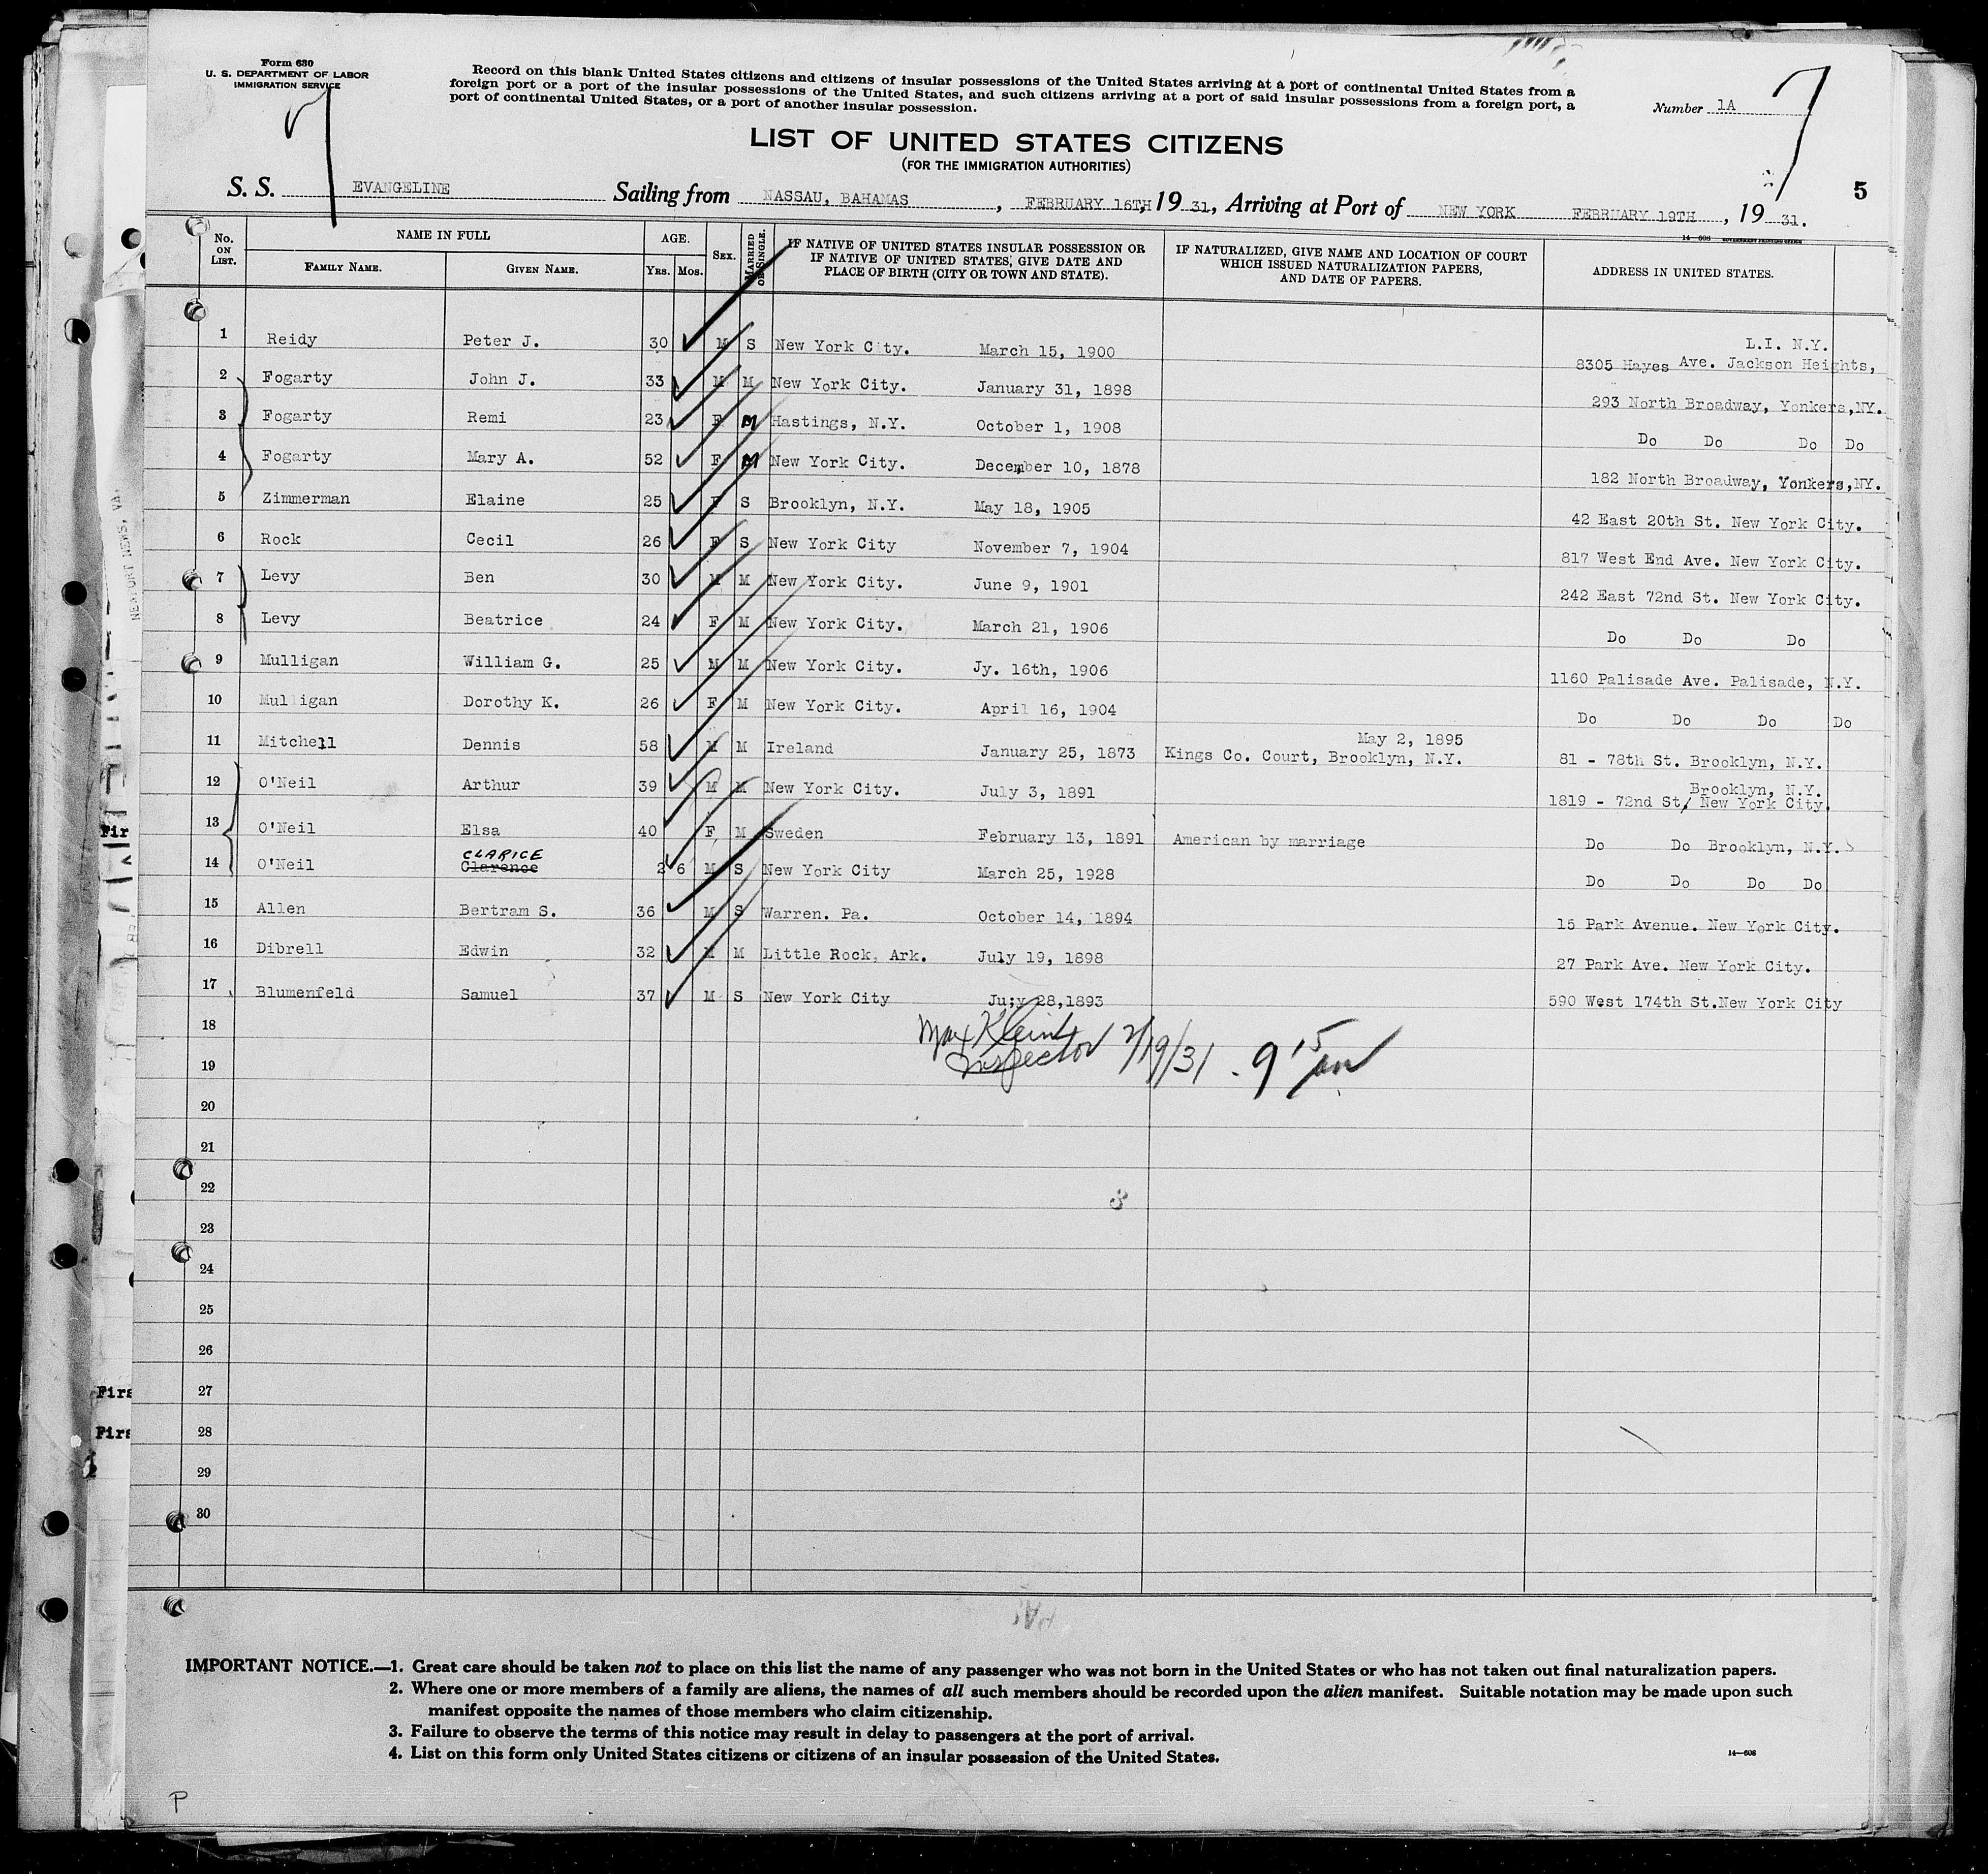 Form 630
U. S. DEPARTMENT OF LABOR
IMMIGRATION SERVICE
Record on this blank United States citizens and citizens of insular possessions of the United States arriving at a port of continental United States from a
foreign port or a port of the insular possessions of the United States, and such citizens arriving at a port of said insular possessions from a foreign port, a
port of continental United States, or a port of another insular possession.
Number 1A
LIST OF UNITED STATES CITIZENS
(FOR THE IMMIGRATION AUTHORITIES)
S. S. EVANGELINE Sailing from NASSAU, BAHAMAS, FEBRUARY 16TH, 19 31, Arriving at Port of NEW YORK FEBRUARY 19TH, 19 31.
5
14—608 GOVERNMENT PRINTING OFFICE
No. ON LIST. NAME IN FULL AGE. SEX. MARRIED OR SINGLE. IF NATIVE OF UNITED STATES INSULAR POSSESSION OR IF NATIVE OF UNITED STATES, GIVE DATE AND PLACE OF BIRTH (CITY OR TOWN AND STATE). IF NATURALIZED, GIVE NAME AND LOCATION OF COURT WHICH ISSUED NATURALIZATION PAPERS, AND DATE OF PAPERS. ADDRESS IN UNITED STATES.
FAMILY NAME. GIVEN NAME. YRS. MOS.
1 Reidy Peter J. 30 M S New York City. March 15, 1900 8305 Hayes Ave. Jackson Heights, L.I. N.Y.
2 Fogarty John J. 33 M M New York City. January 31, 1898 293 North Broadway, Yonkers,NY.
3 Fogarty Remi 23 F M Hastings, N.Y. October 1, 1908 Do Do Do Do
4 Fogarty Mary A. 52 F M New York City. December 10, 1878 182 North Broadway, Yonkers,NY.
5 Zimmerman Elaine 25 F S Brooklyn, N.Y. May 18, 1905 42 East 20th St. New York City.
6 Rock Cecil 26 F S New York City November 7, 1904 817 West End Ave. New York City.
7 Levy Ben 30 M M New York City. June 9, 1901 242 East 72nd St. New York City.
8 Levy Beatrice 24 F M New York City. March 21, 1906 Do Do Do
9 Mulligan William G. 25 M M New York City. Jy. 16th, 1906 1160 Palisade Ave. Palisade, N.Y.
10 Mulligan Dorothy K. 26 F M New York City. April 16, 1904 Do Do Do Do
11 Mitchell Dennis 58 M M Ireland January 25, 1873 Kings Co. Court, Brooklyn, N.Y. May 2, 1895 81 - 78th St. Brooklyn, N.Y.
12 O'Neil Arthur 39 M M New York City. July 3, 1891 1819 - 72nd St/ New York City. Brooklyn, N.Y.
13 O'Neil Elsa 40 F M Sweden February 13, 1891 American by marriage Do Do Brooklyn, N.Y.
14 O'Neil Clarence CLARICE 2 6 M S New York City March 25, 1928 Do Do Do Do
15 Allen Bertram S. 36 M S Warren. Pa. October 14, 1894 15 Park Avenue. New York City.
16 Dibrell Edwin 32 M M Little Rock, Ark. July 19, 1898 27 Park Ave. New York City.
17 Blumenfeld Samuel 37 M S New York City Ju;y 28,1893 590 West 174th St.New York City
18
Max Klein
Inspector 2/19/31 - 9 15 am
19
20
21
22
23
24
25
26
27
28
29
30
Fir
Firs
Firs
IMPORTANT NOTICE.—1. Great care should be taken not to place on this list the name of any passenger who was not born in the United States or who has not taken out final naturalization papers.
2. Where one or more members of a family are aliens, the names of all such members should be recorded upon the alien manifest. Suitable notation may be made upon such
manifest opposite the names of those members who claim citizenship.
3. Failure to observe the terms of this notice may result in delay to passengers at the port of arrival.
4. List on this form only United States citizens or citizens of an insular possession of the United States.
14—608
P